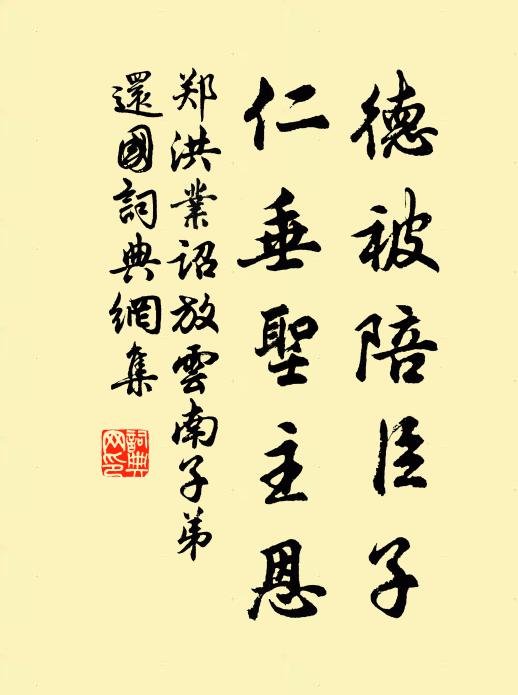 德被陪臣子
仁垂聖主恩
郑洪業詔放雲南子弟
還國詞典網集
詞典网印